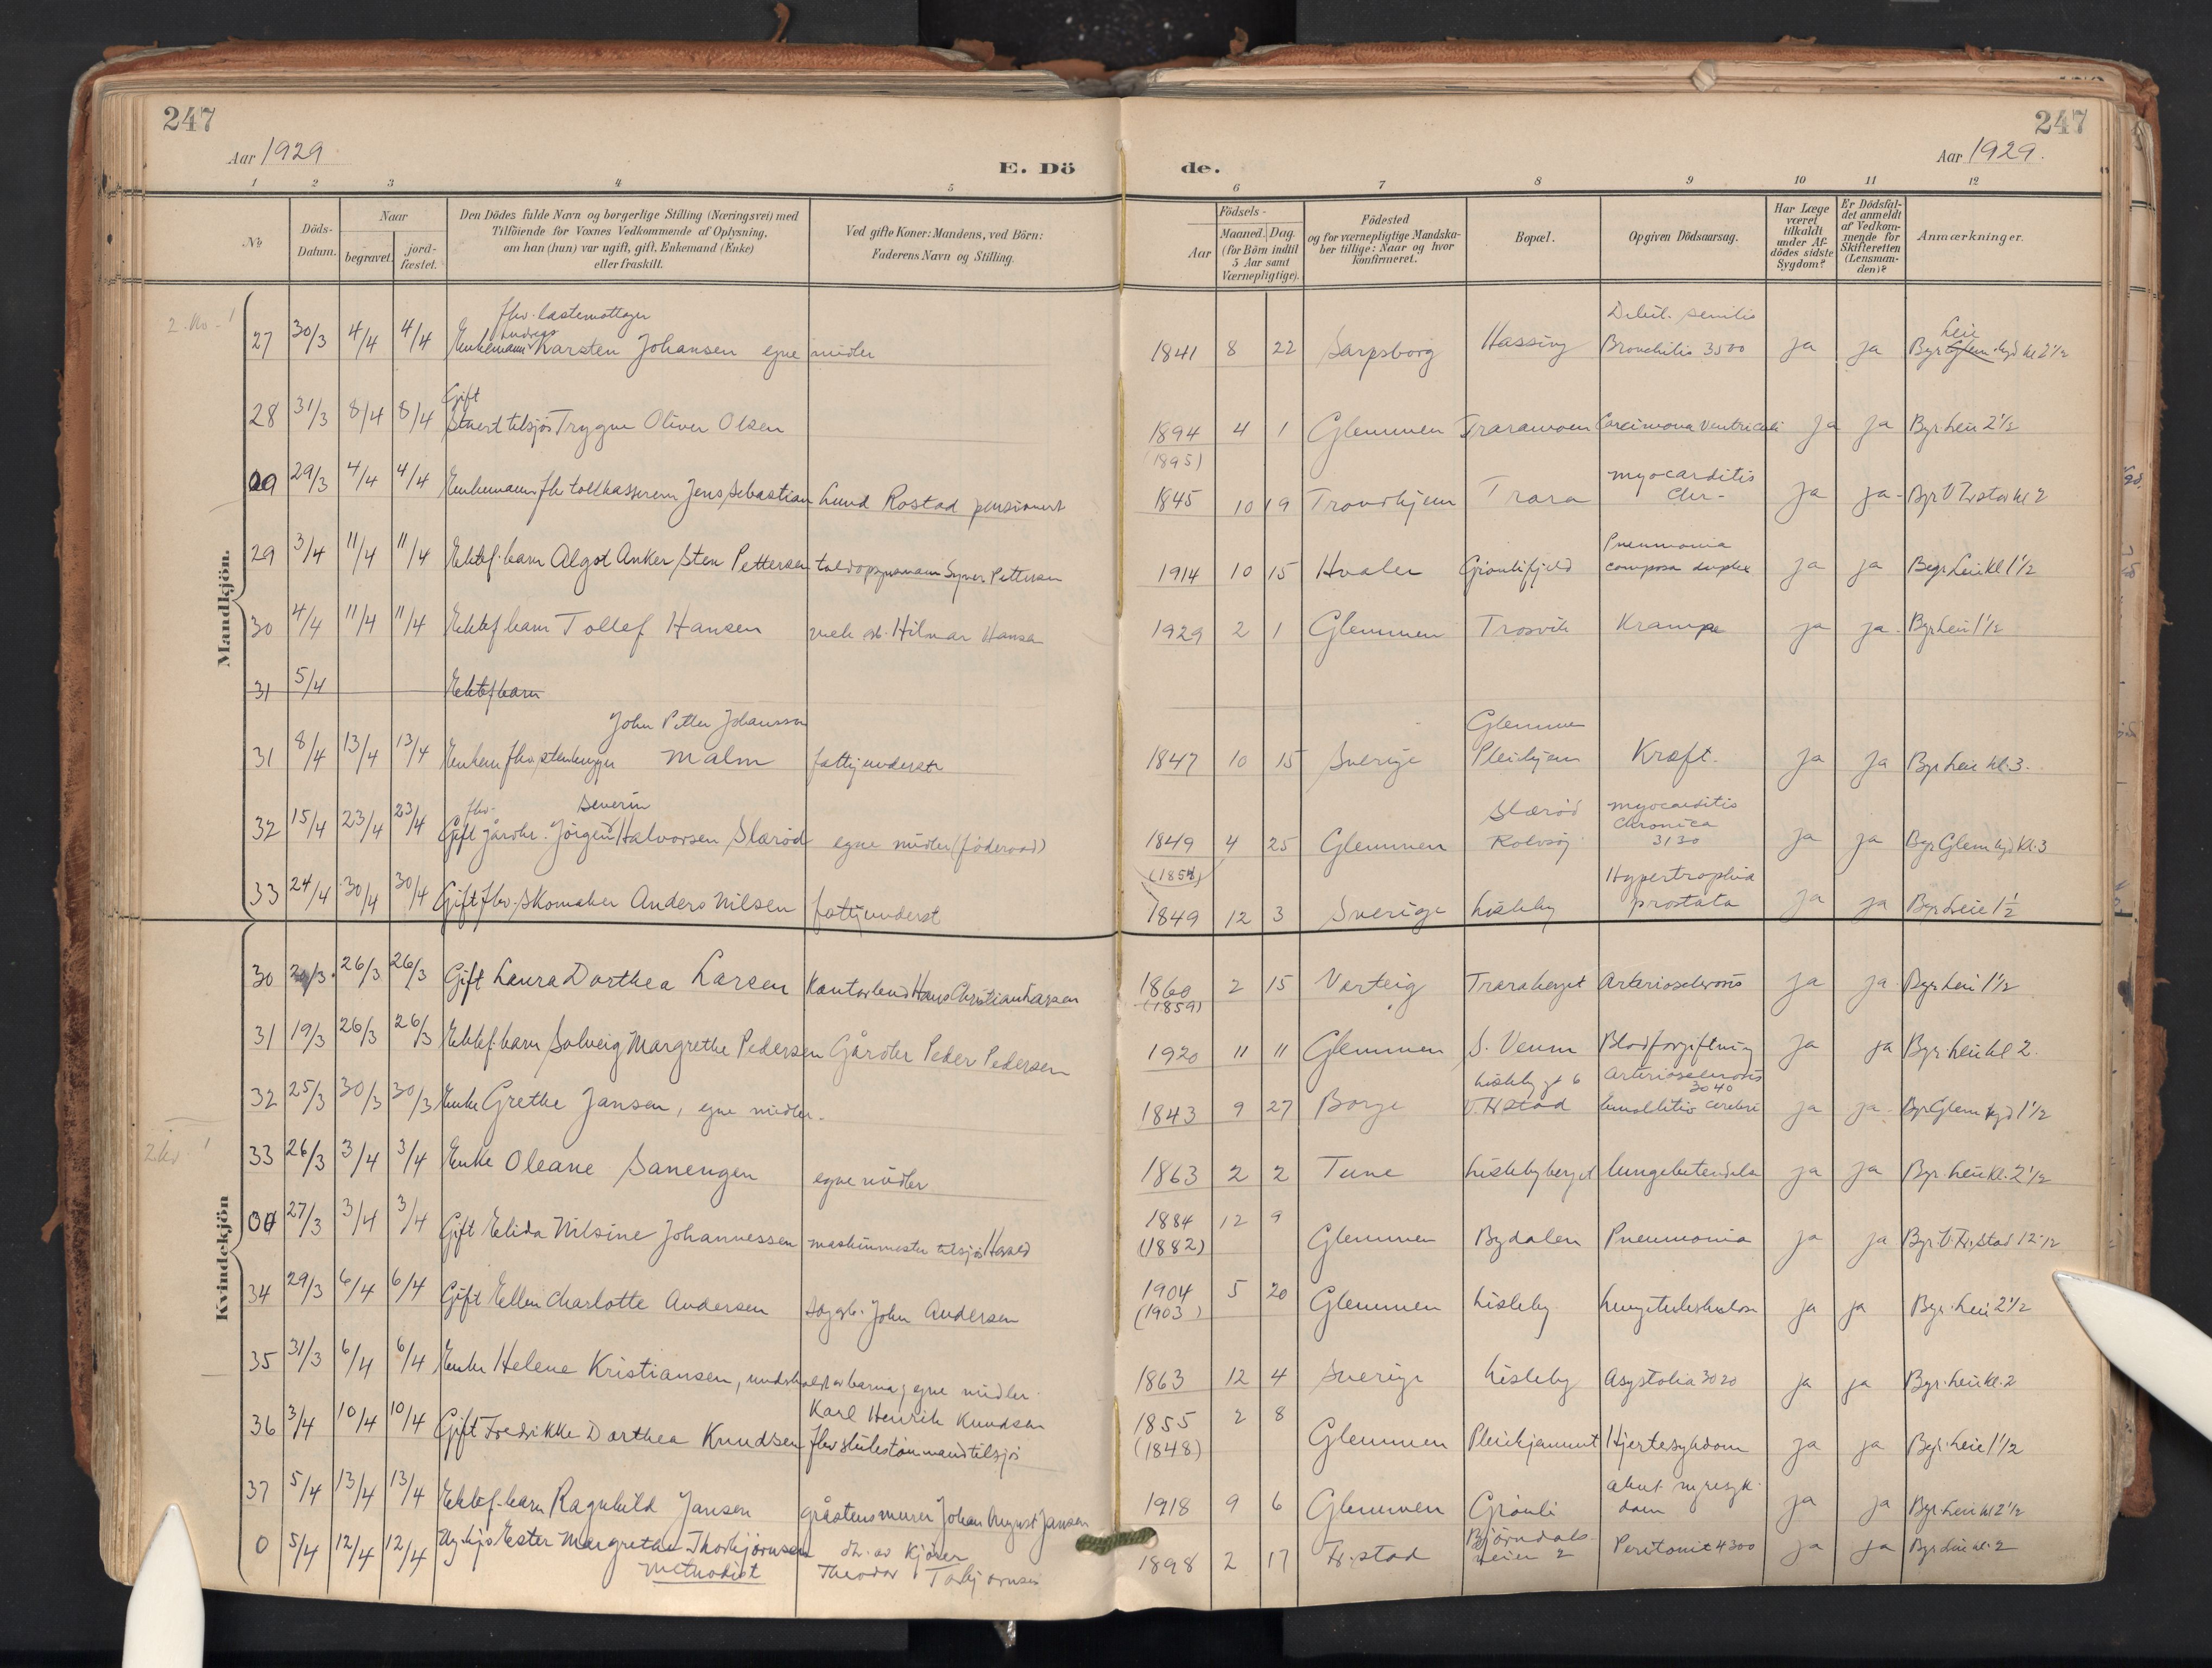 247
247
Aar 1929
E. Dö
de.
Aar 1929.
1 2 3 4 5 6 7 8 9 10 11 12
No
Döds-
Datum.
Naar
begravet.
jord-
fæstet.
Den Dödes fulde Navn og borgerlige Stilling (Næringsvei) med
Tilföiende for Voxnes Vedkommende af Oplysning,
om han (hun) var ugift, gift, Enkemand (Enke)
eller fraskilt.
Ved gifte Koner: Mandens, ved Börn:
Faderens Navn og Stilling.
Födsels-
Aar
Maaned. Dag.
(for Börn indtil
5 Aar samt
Værnepligtige).
Födested
og for værnepligtige Mandska-
ber tillige: Naar og hvor
konfirmeret.
Bopæl.
Opgiven Dödsaarsag.
Har Læge
været
tilkaldt
under Af-
dödes sidste
Sygdom?
Er Dödsfal-
det anmeldt
af Vedkom-
mende for
Skifteretten
(Lensman-
den)?
Anmærkninger.
Mandkjön.
fhv. lastemottager
27 30/3 4/4 4/4 Enkemann Karsten Johansen egne midler 1841 8 22 Sarpsborg Hassing Debil. senilis
Bronchitis 3500 ja ja Leie
Byr Glem. kgd kl 2 1/2
Gift
28 31/3 8/4 8/4 Stuert tilsjøs Trygve Oliver Olsen 1894 4 1 Glemmen Traramoen Carcinoma Ventriculi ja ja Byr Leie 2 1/2
(1895)
29/3 4/4 4/4 Enkemann fhv tollkasserer Jens Sebastian Lund Rostad pensionert 1845 10 19 Trondhjem Trara myocarditis
chr- ja ja- Byr V Frstad kl 2
29 3/4 11/4 11/4 Ektef. barn Algot Anker Sten Pettersen toldopsynsmann Syver Pettersen 1914 10 15 Hvaler Grønlifjeld Pneumonia
duplex ja ja Begr Leie kl 1 1/2
30 4/4 11/4 11/4 Ektef barn Tollef Hansen mek arb. Hilmar Hansen 1929 2 1 Glemmen Trosvik Krampe ja ja. Byr Leie 1 1/2
31 5/4 Ektef barn
John Petter Johansson
31 8/4 13/4 13/4 Enkem fhv stenhugger Malm fattigunderst 1847 10 15 Sverige Glemmen
Pleiehjem Kræft. ja ja Byr Leie kl. 3.
fhv. Severin
32 15/4 23/4 23/4 Gift gårdbr. Jörgen Halvorsen Skaröd egne midler (föderaad) 1849 4 25 Glemmen Skaröd
Rolvsøy myocarditis
chronica
3130 ja ja Byr Glem kgd kl. 3
(1854)
33 24/4 30/4 30/4 Gift fhv. Skomaker Anders Nilsen fattigunderst 1849 12 3 Sverige Lisleby Hypertrophia
prostata ja ja Byr Leie 1 1/2
Kvindekjön
30 26/3 26/3 Gift Laura Dorthea Larsen Kontorbud Hans Christian Larsen 1860 2 15 Varteig Traraberget Arteriosclerosis ja ja Byr Leie 1 1/2
(1859)
31 19/3 26/3 26/3 Ektef. barn Solveig Margrethe Pedersen Gårdbr Peder Pedersen 1920 11 11 Glemmen S. Veum Blodforgiftning ja ja Byr. Leie kl 2.
32 25/3 30/3 30/3 Enke Grethe Jansen, egne midler. 1843 9 27 Borge Lisleby gt 6
V. Frstad Arteriosclerosis
3040
Emollitio cerebri ja ja. Byr Glem kgd 1 1/2
33 26/3 3/4 3/4 Enke Oleane Sanengen egne midler 1863 2 2 Tune Lislebyberget lungebetendelse ja ja Byr. Leie kl. 2 1/2
27/3 3/4 3/4 Gift Elida Nilsine Johannessen maskinmester tilsjøs Harald 1884 12 9 Glemmen Bydalen Pneumonia ja ja Byr V. Fr.stad 12 1/2
(1882)
34 29/3 6/4 6/4 Gift Ellen Charlotte Andersen sagarb. John Andersen 1904 5 20 Glemmen Lisleby Lungetuberkulose ja ja Byr. Leie 2 1/2
(1903)
35 31/3 6/4 6/4 Enke Helene Kristiansen, underholdt av barna, egne midler. 1863 12 4 Sverige Lisleby Asystolia 3020 ja ja Byr. Leie kl. 2
36 3/4 10/4 10/4 Gift Fredrikke Dorthea Knudsen Karl Henrik Knudsen
fhv tilsjøs 1855 2 8 Glemmen Pleiehjemmet Hjertesykdom ja ja Byr. Leie 1 1/2
(1848)
37 5/4 13/4 13/4 Ektef. barn Ragnhild Jansen gråstensmurer Johan August Jansen 1918 9 6 Glemmen Grønli akut nyresyk-
dom ja ja Byr. Leie kl 2 1/2
0 5/4 12/4 12/4 Ester Margrethe Thorbjørnsen dtr. av Kjører 1898 2 17 Fr.stad Bjørndals-
veien 2 Peritonit 4300 ja ja Byr Leie kl. 2
methodist Theodor Torbjørnsen